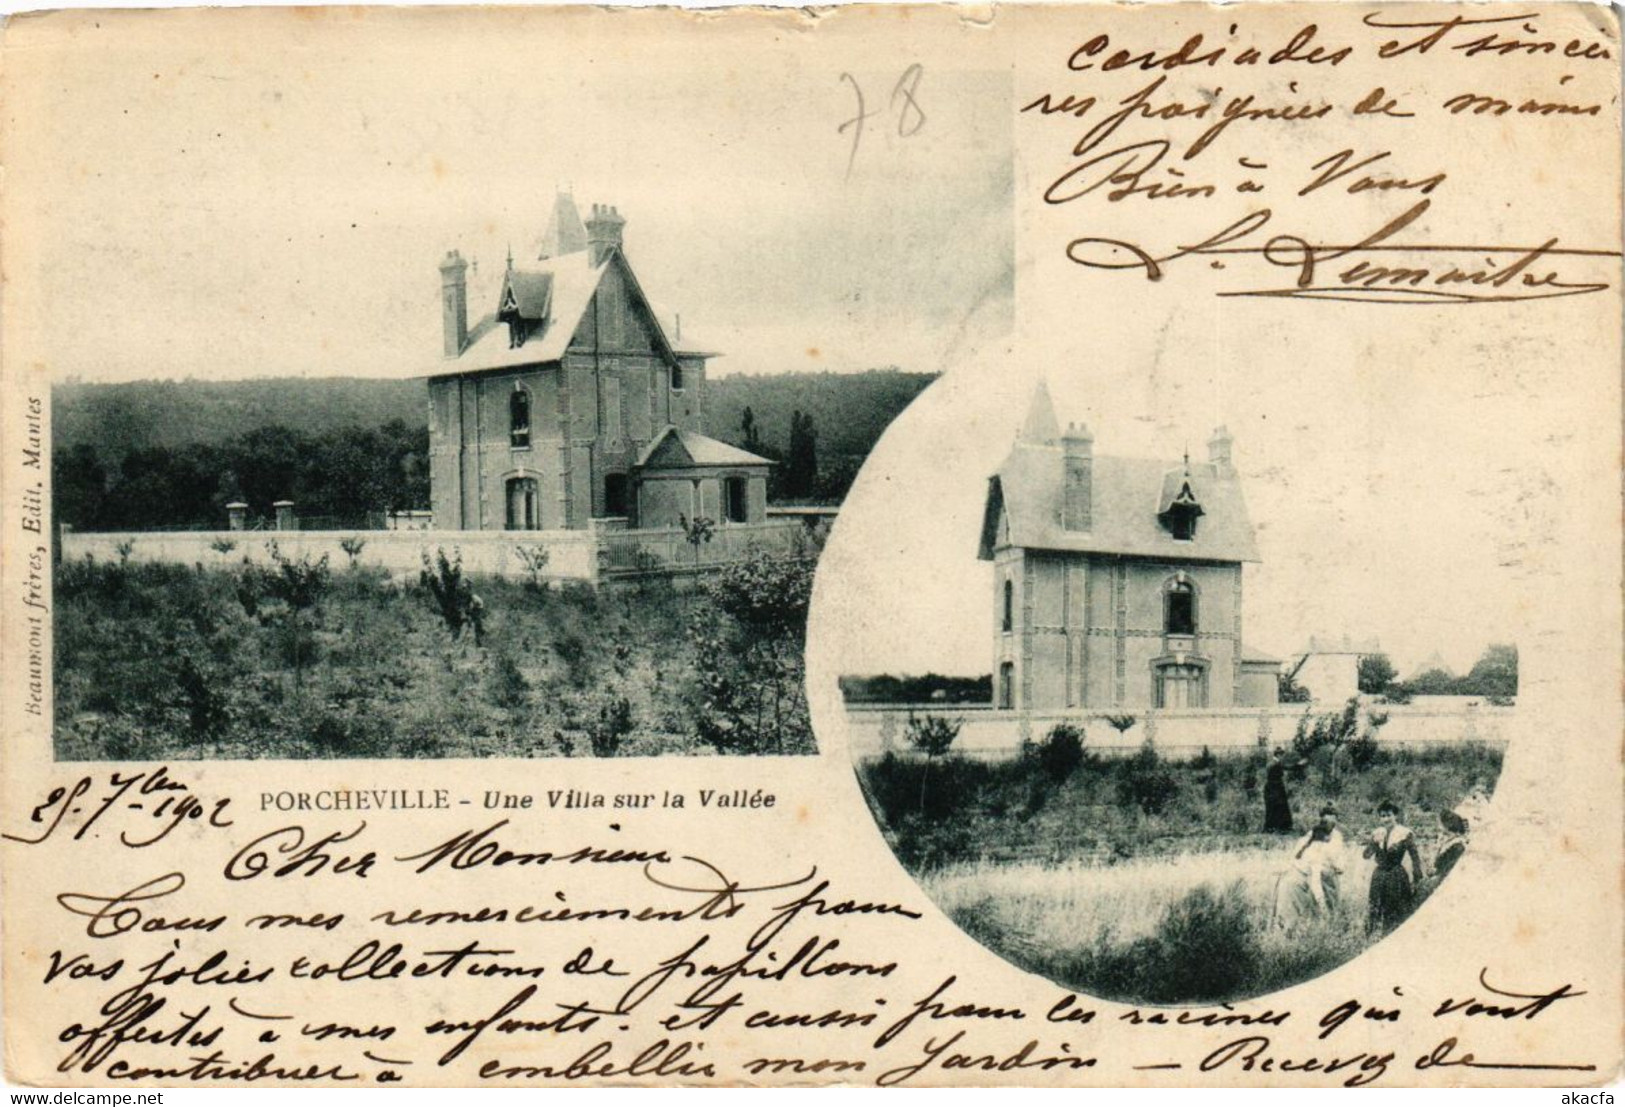 78
Beaumont frères, Edit. Mantes
PORCHEVILLE - Une Villa sur la Vallée
25. 7bre 1902
Cher Monsieur
Tous mes remerciements pour
vos jolies collections de papillons
offertes à mes enfants. et aussi pour les racines qui vont
contribuer à embellir mon Jardin — Recevez de
Cordiades et sincè
res poignées de mains
Bien à Vous
L. Lemaitre
akacfa
akacfa.com